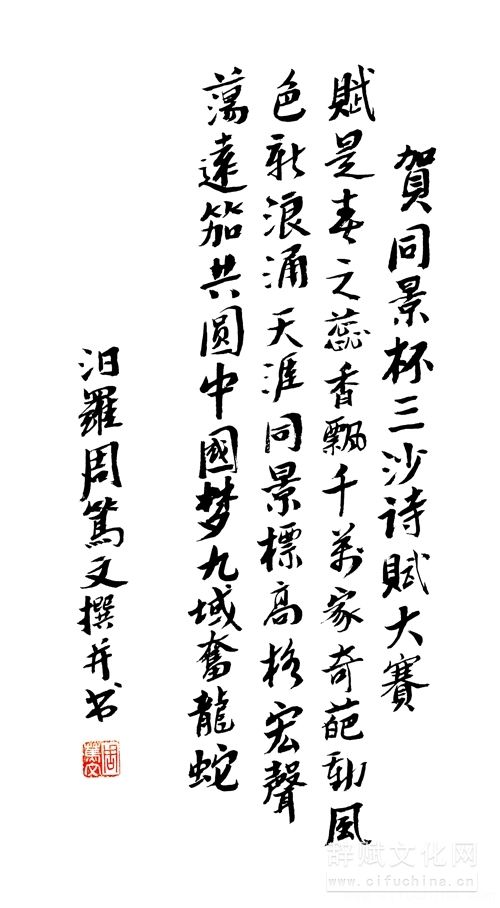 賀同景杯三沙诗賦大賽
賦是春之蕊香飄千萬家奇葩動風
色新浪涌天涯同景標高格宏聲
蕩遠笳共圆中國梦九域奮龍蛇
汨羅周篤文撰并书
周篤文
辞赋文化网
www.cifuchina.cn